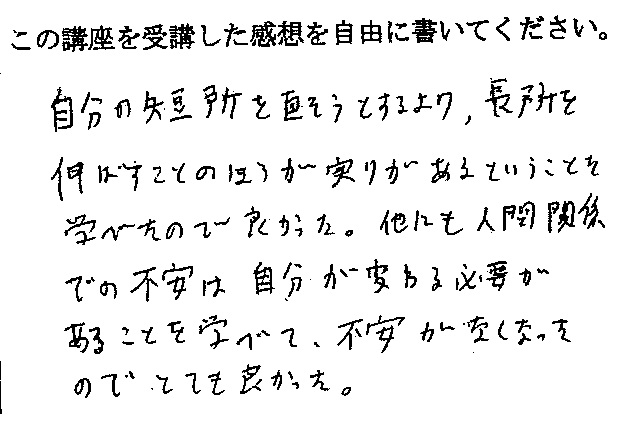 この講座を受講した感想を自由に書いてください。
自分の短所を直そうとするより,長所を
伸ばすことのほうが実りがあるということを
学べたので良かった。他にも人間関係
での不安は自分が変わる必要が
あることを学べて、不安がなくなった
のでとても良かった。